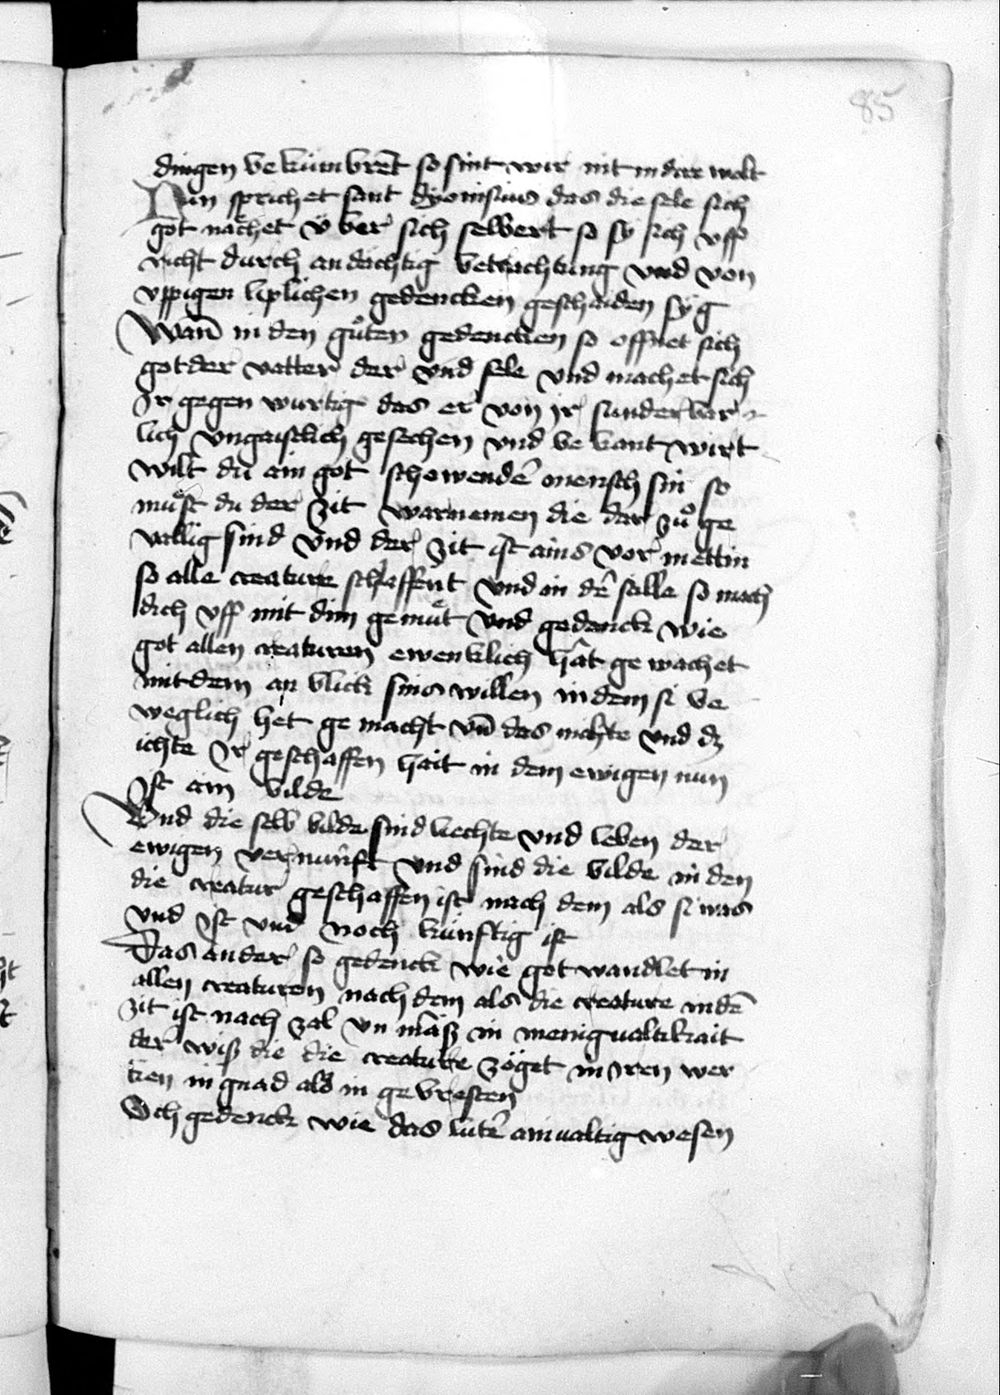 85
dingen bekümbret so sint wir nit in der welt
Nun sprichet sant dyonisius das die sele sich
got nächet über sich selbert so sy sich uff
richt durch andächtig betrachtung vnd von
üppigen liplichen gedencken geschaiden syg
Wan̄ in den gůten gedencken so offnet sich
got der vatter der vnd sele vnd machet sich
Ir gegen wurtig das er von ir sunderbar
lich vngaistlich gesechen vnd bekant wirt
wilt du ain got schowende mensch sin so
můst du der zit warnemen die dar zů ge
vallig sind vnd der zit ist ains vor mettin
so alle creature schlaffent vnd in dē stille so mach
dich uff mit dim gemůt vnd gedenck wie
got allen creaturen ewenklich hat gewachet
mit dem an blick sins willen in dem si be
weglich het gemacht vn̄ das nichte vnd dz
ichte Ir geschaffen hait in dem ewigen nun
Ist ain bilde
Vnd die selb bilde sind liechte vnd leben der
ewigen vernunft vnd sind die bilde in den
die creatur geschaffen ist nach dem als si was
vnd Ist vnd noch künftig ist
Das ander so gedenck wie got wandlet in
allen creaturen nach dem als die creature in dē
zit ist nach zal vn māß in menigualtikait
der wiß die die creature zöget in Iren wer
ken in gnad ald in gebresten
Och gedenck wie das luter ainualtig wesen